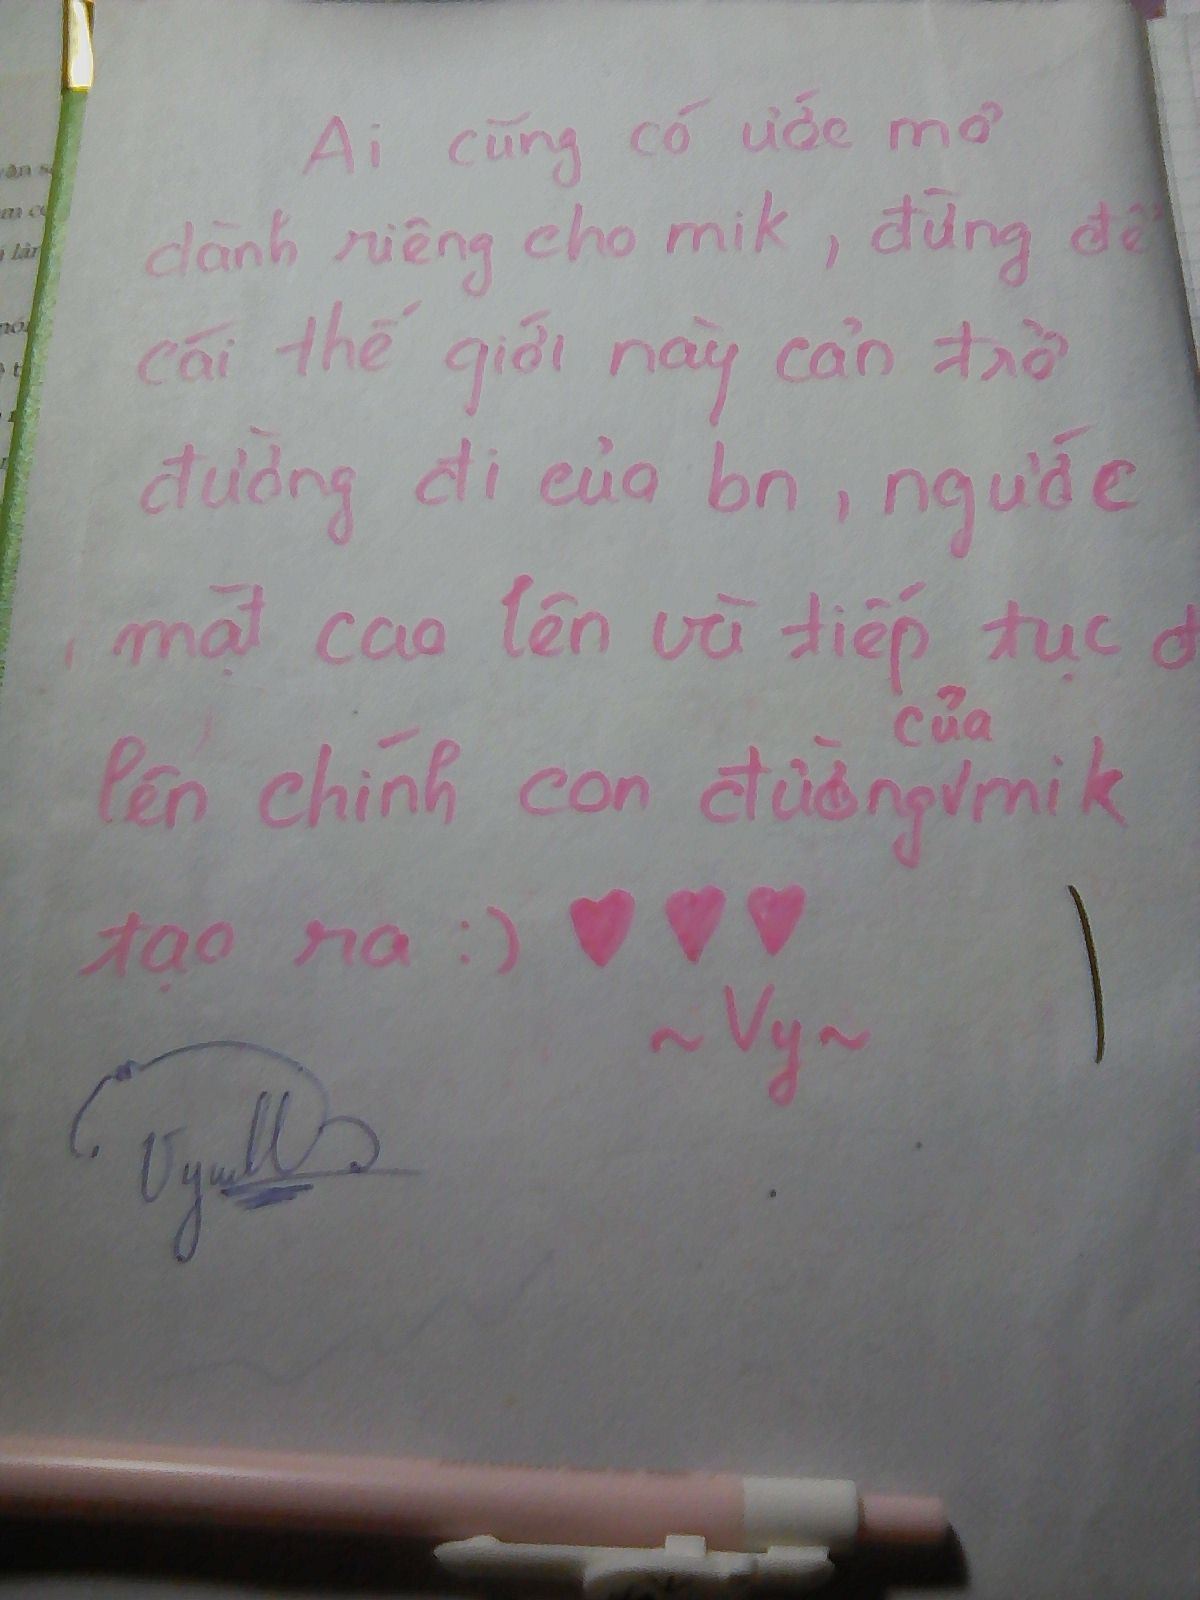 Ai cũng có ước mơ
dành riêng cho mik, đừng để
cái thế giới này cản trở
đường đi của bn, ngước
mặt cao lên và tiếp tục đ
lên chính con đường của mik
tạo ra :) ♥ ♥ ♥
~Vy~